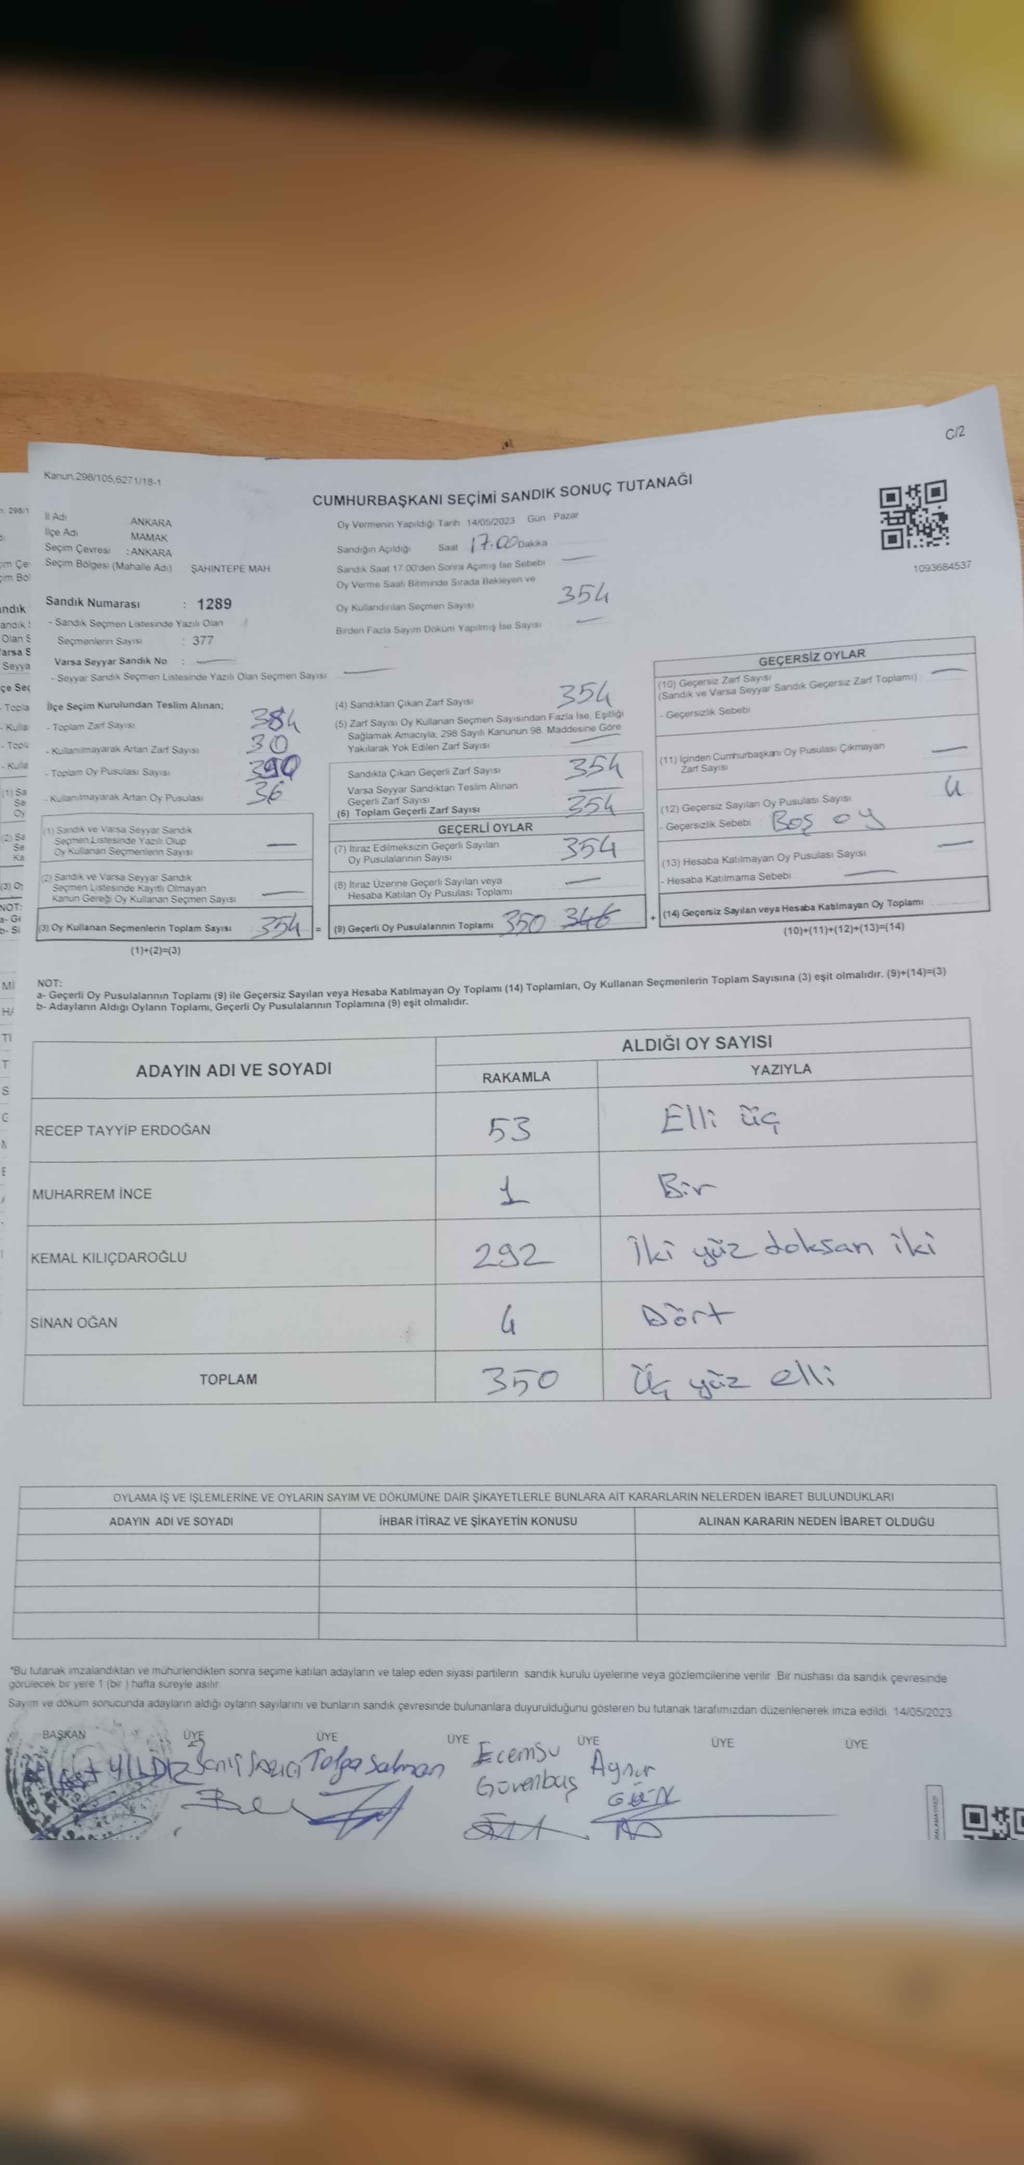 C/2
Kanun.298/105,6271/18-1
CUMHURBAŞKANI SEÇİMİ SANDIK SONUÇ TUTANAĞI
İl Adı ANKARA
İlçe Adı MAMAK
Seçim Çevresi : ANKARA
Seçim Bölgesi (Mahalle Adı) ŞAHINTEPE MAH
Sandık Numarası : 1289
- Sandık Seçmen Listesinde Yazılı Olan
Seçmenlerin Sayısı : 377
Varsa Seyyar Sandık No :
- Seyyar Sandık Seçmen Listesinde Yazılı Olan Seçmen Sayısı
Oy Vermenin Yapıldığı Tarih 14/05/2023 Gün : Pazar
Sandığın Açıldığı Saat 17.00 Dakika
Sandık Saat 17.00'den Sonra Açımış İse Sebebi
Oy Verme Saati Bitiminde Sırada Bekleyen ve
Oy Kullandırılan Seçmen Sayısı 354
Birden Fazla Sayım Döküm Yapılmış İse Sayısı
1093684537
İlçe Seçim Kurulundan Teslim Alınan;
- Toplam Zarf Sayısı 384
- Kullanılmayarak Artan Zarf Sayısı 30
- Toplam Oy Pusulası Sayısı 390
- Kullanılmayarak Artan Oy Pusulası 36
(1) Sandık ve Varsa Seyyar Sandık
Seçmen Listesinde Yazılı Olup
Oy Kullanan Seçmenlerin Sayısı
(2) Sandık ve Varsa Seyyar Sandık
Seçmen Listesinde Kayıtlı Olmayan
Kanun Gereği Oy Kullanan Seçmen Sayısı
(3) Oy Kullanan Seçmenlerin Toplam Sayısı 354 =
(1)+(2)=(3)
(4) Sandıktan Çıkan Zarf Sayısı 354
(5) Zarf Sayısı Oy Kullanan Seçmen Sayısından Fazla İse, Eşitliği
Sağlamak Amacıyla, 298 Sayılı Kanunun 98. Maddesine Göre
Yakılarak Yok Edilen Zarf Sayısı
Sandıkta Çıkan Geçerli Zarf Sayısı 354
Varsa Seyyar Sandıktan Teslim Alınan
Geçerli Zarf Sayısı
(6) Toplam Geçerli Zarf Sayısı 354
GEÇERLİ OYLAR
(7) İtiraz Edilmeksizin Geçerli Sayılan
Oy Pusulalarının Sayısı 354
(8) İtiraz Üzerine Geçerli Sayılan veya
Hesaba Katılan Oy Pusulası Toplamı
(9) Geçerli Oy Pusulalarının Toplamı 350 346 +
GEÇERSİZ OYLAR
(10) Geçersiz Zarf Sayısı
(Sandık ve Varsa Seyyar Sandık Geçersiz Zarf Toplamı)
- Geçersizlik Sebebi
(11) İçinden Cumhurbaşkanı Oy Pusulası Çıkmayan
Zarf Sayısı
(12) Geçersiz Sayılan Oy Pusulası Sayısı 4
- Geçersizlik Sebebi Boş oy
(13) Hesaba Katılmayan Oy Pusulası Sayısı
- Hesaba Katılmama Sebebi
(14) Geçersiz Sayılan veya Hesaba Katılmayan Oy Toplamı
(10)+(11)+(12)+(13)=(14)
NOT:
a- Geçerli Oy Pusulalarının Toplamı (9) ile Geçersiz Sayılan veya Hesaba Katılmayan Oy Toplamı (14) Toplamları, Oy Kullanan Seçmenlerin Toplam Sayısına (3) eşit olmalıdır. (9)+(14)=(3)
b- Adayların Aldığı Oyların Toplamı, Geçerli Oy Pusulalarının Toplamına (9) eşit olmalıdır.
ADAYIN ADI VE SOYADI ALDIĞI OY SAYISI
RAKAMLA YAZIYLA
RECEP TAYYİP ERDOĞAN 53 Elli üç
MUHARREM İNCE 1 Bir
KEMAL KILIÇDAROĞLU 292 İki yüz doksan iki
SİNAN OĞAN 4 Dört
TOPLAM 350 Üç yüz elli
OYLAMA İŞ VE İŞLEMLERİNE VE OYLARIN SAYIM VE DÖKÜMÜNE DAİR ŞİKAYETLERLE BUNLARA AİT KARARLARIN NELERDEN İBARET BULUNDUKLARI
ADAYIN ADI VE SOYADI İHBAR İTİRAZ VE ŞİKAYETİN KONUSU ALINAN KARARIN NEDEN İBARET OLDUĞU
*Bu tutanak imzalandıktan ve mühürlendikten sonra seçime katılan adayların ve talep eden siyasi partilerin sandık kurulu üyelerine veya gözlemcilerine verilir. Bir nüshası da sandık çevresinde
görülecek bir yere 1 (bir ) hafta süreyle asılır.
Sayım ve döküm sonucunda adayların aldığı oyların sayılarını ve bunların sandık çevresinde bulunanlara duyurulduğunu gösteren bu tutanak tarafımızdan düzenlenerek imza edildi. 14/05/2023
BAŞKAN ÜYE ÜYE ÜYE ÜYE ÜYE ÜYE
YILDIZ Tolga Salman Ecemsu Güvenbaş Aynur GÜN